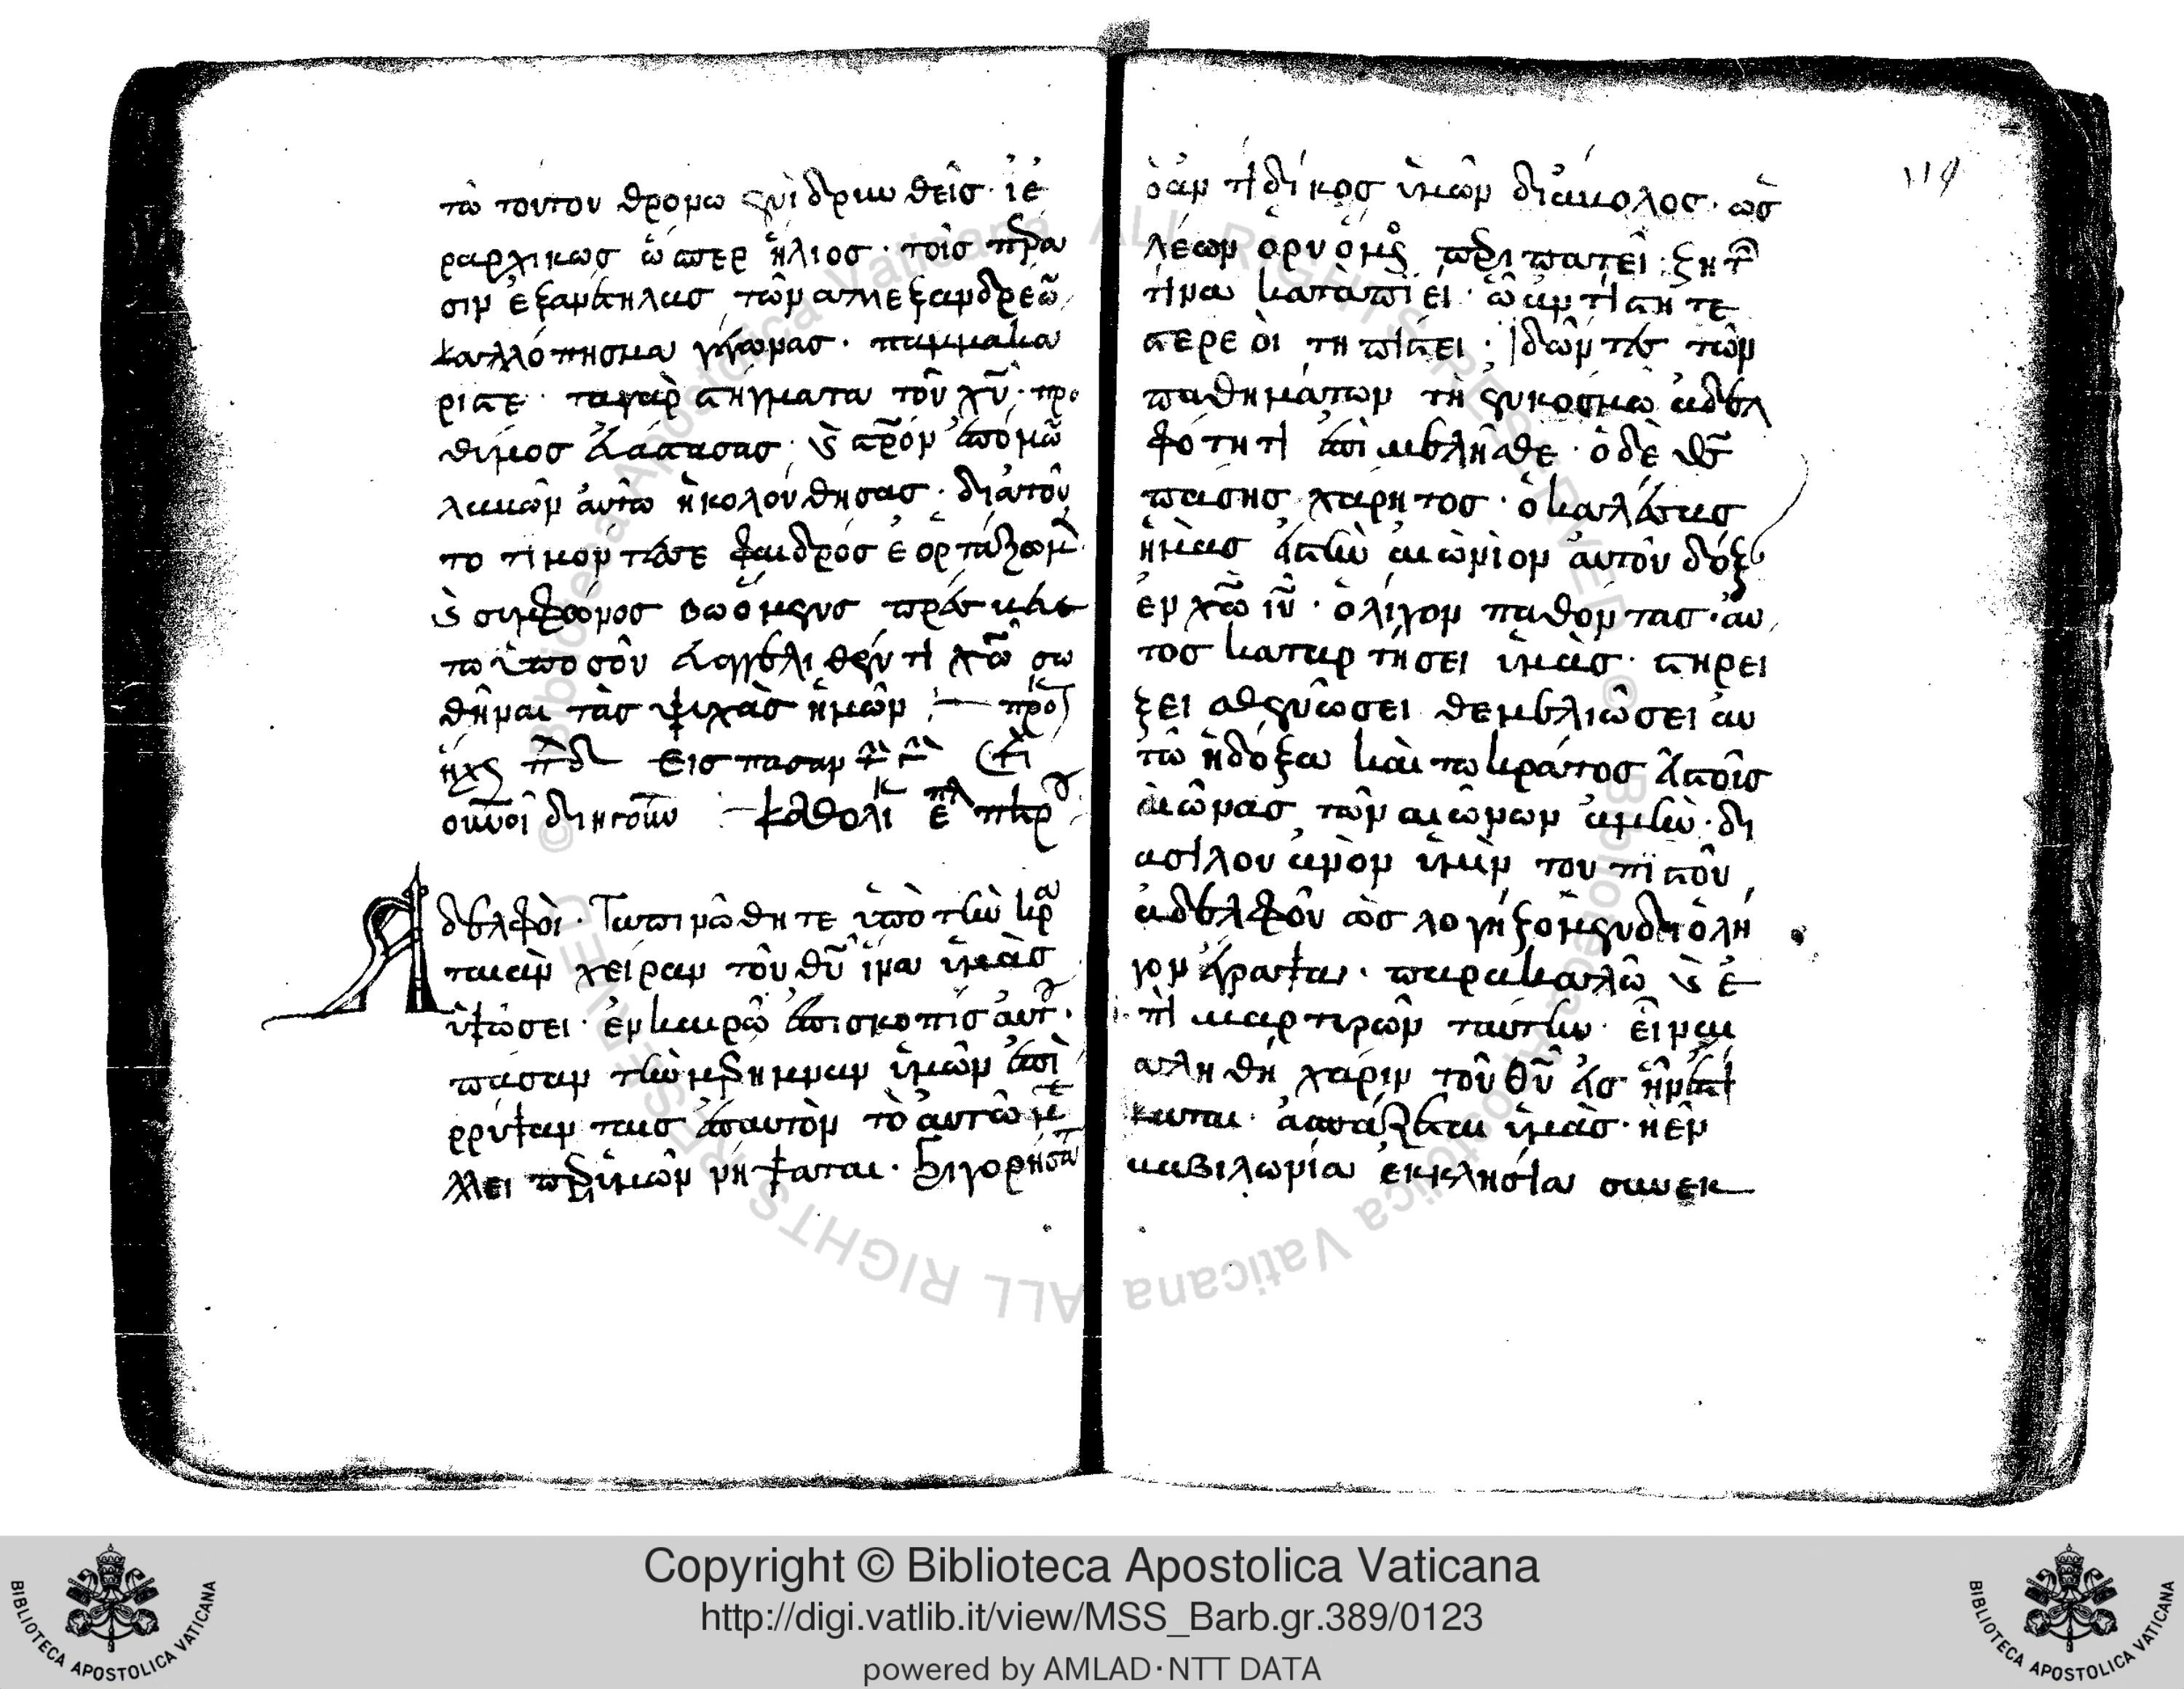 τῶ τούτου θρόνω ἐνιδρυνθεὶς· ἱε
ραρχικῶς ὥσπερ ἥλιος· τοῖς πέρα
σιν ἐξανέτηλας τῶν ἀλεξανδρέω
καλλόπησμα γέγωνας· παμμακά
ριστε· τα γὰρ στήγματα τοῦ χῦ· προ
θύμος ἀσπασας· καὶ στρον ἐπομῶ
λαμῶν αὐτῶ ἠκολούθησας· διὰ τοῦ
το τὶ μον πάσε φαιδρός ἑορτάζομ
καὶ συμφώνος βωόμενος
τω ὑπὸ σοῦ εὐαγγελισθέντι χῶ σω
θῆναι τὰς ψυχὰς ἡμῶν πρὸ
ἦχος πδ εἰς πᾶσαν τ γ
οἱ οὐνοὶ διηγοῦν καθολι ἐπ πετρ
Ἀδελφοὶ· Ταπινώθητε ὑπὸ τὴν κρα
ταιὰν χεῖραν τοῦ θῦ ἵνα ὑμᾶς
ὑψώσει· ἐν καιρῶ ἐπισκοπῆς αὐτ·
πᾶσαν τὴν μέρημναν ὑμῶν ἐπι
ρρύψανταις ἐπαυτὸν τὸ αὐτῶ μέ
λλει περὶ ὑμῶν νήψαται· γρηγορησα
ὁ ἀντίδικος ὑμῶν διάβολος· ὡς
λέων ὀρυόμενος περιπατεῖ· ζητ
τίνα καταπίει· ὧ ἀντίστητε
στερεοὶ τη πίστει· ἰδῶντες τῶν
παθημάτων τῆ ἐν κόσμω ἀδελ
φότητι ἐπιμελῆσθε· ὁ δὲ θς
πάσης χάρητος· ὁ καλέσας
ἡμᾶς εἰς τὴν αἰώνιον αὐτοῦ δόξ
ἐν χῶ ἰῦ· ὀλίγον παθόντας· αὐ
τος καταρτήσει ὑμᾶς· στηρεί
ξει σθενώσει θεμελιώσει αὐ
τῶ ἡ δόξα καὶ τω κράτος εἰς τοῖς
αἰῶνας τῶν αἰῶνων ἀμήν· δη
ασίλουανὸν ὑμὶν του πιστοῦ
ἀδελφοῦ ὡς λογήζομεν δι ὀλή
γον ἔγραψα· παρακαλῶ καὶ ἐ
πὶ μαρτυρῶν ταύτην· εἶναι
ἀληθῆ χάριν τοῦ θῦ εἰς ἣν ἑστ
καται· ἀσπάζεται ὑμᾶς· ἡ ἐν
βαβιλωνία ἐκκλησία συνεκ
119
Copyright © Biblioteca Apostolica Vaticana
http://digi.vatlib.it/view/MSS_Barb.gr.389/0123
powered by AMLAD·NTT DATA
BIBLIOTECA APOSTOLICA VATICANA
BIBLIOTECA APOSTOLICA VATICANA